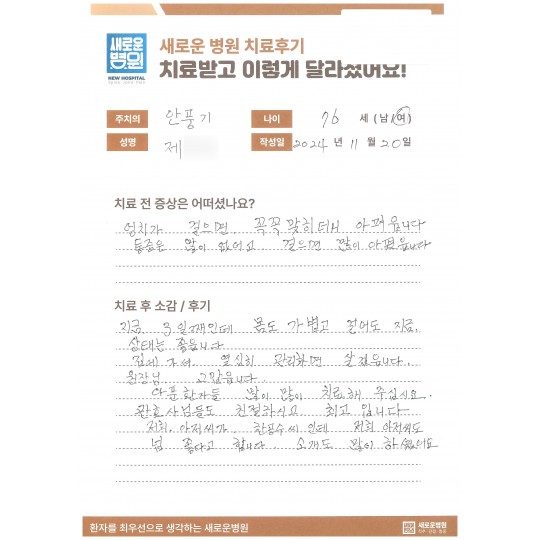 새로운
병원
NEW HOSPITAL
새로운 병원 치료후기
치료받고 이렇게 달라졌어요!
주치의 안풍기 나이 76 세 (남/여)
성명 제 작성일 2024 년 11 월 20 일
치료 전 증상은 어떠셨나요?
엉치가 걸으면 꼭꼭 맞히더니 아펐읍니다
통증은 많이 없어고 걸으면 많이 아펐읍니다
치료 후 소감 / 후기
지금 3일째인데 몸도 가볍고 걸어도 지금
상태는 좋읍니다
집에 가서 열심히 관리하면 살겠읍니다.
원장님 고맙읍니다
아푼환자들 많이 많이 치료해 주십시요.
간호사님들도 친절하시고 최고 입니다
저희 아저씨가 씨 인데 저희 아저씨도
넘 좋다고 합니다. 소개도 많이 하셨어요
환자를 최우선으로 생각하는 새로운병원
새로운병원